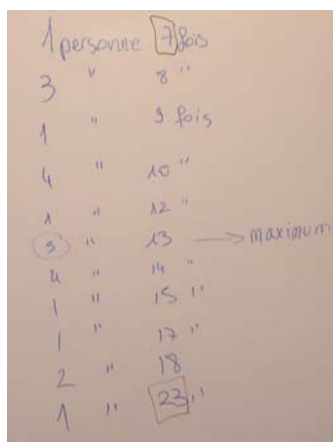 1 personne 7 fois
3 " 8 "
1 " 9 fois
4 " 10 "
1 " 12 "
5 " 13 —> maximum
4 " 14 "
1 " 15 "
1 " 17 "
2 " 18
1 " 23 "